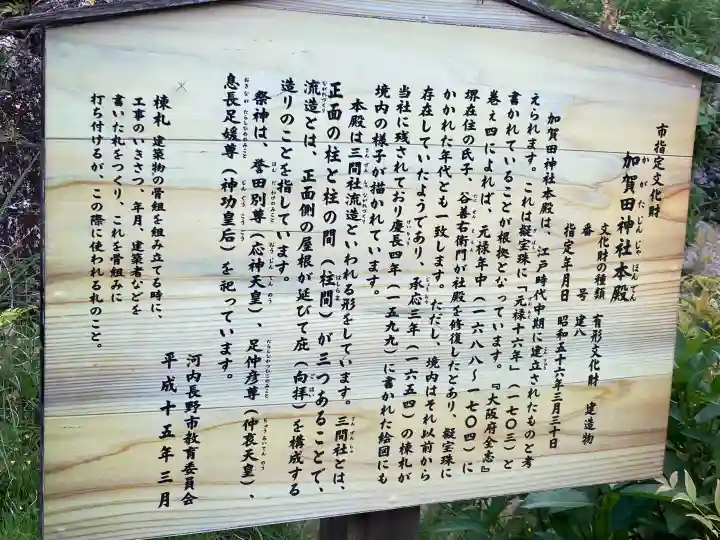 市指定文化財
加賀田神社本殿
かがたじんじゃほんでん
文化財の種類 有形文化財 建造物
番号 建八
指定年月日 昭和五十六年三月三十日
加賀田神社本殿は、江戸時代中期に建立されたものと考
えられます。これは擬宝珠に「元禄十六年」（一七〇三）と
書かれていることが根拠となっています。『大阪府全志』
巻ぇ四によれば、元禄年中（一六八八〜一七〇四）に
堺在住の氏子、谷善右衛門が社殿を修復したとあり、擬宝珠に
かかれた年代とも一致します。ただし、境内はそれ以前から
存在していたようであり、承応三年（一六五四）の棟札が
当社に残されており慶長四年（一五九九）に書かれた絵図にも
境内の様子が描かれています。
本殿は三間社流造といわれる形をしています。三間社とは、
正面の柱と柱の間（柱間）が三つあることで、
流造とは、正面側の屋根が延びて庇（向拝）を構成する
造りのことを指しています。
祭神は、誉田別尊（応神天皇）、足仲彦尊（仲哀天皇）、
息長足媛尊（神功皇后）を祀っています。
棟札 建築物の骨組を組み立てる時に、
工事のいきさつ、年月、建築者などを
書いた札をつくり、これを骨組みに
打ち付けるが、この際に使われる札のこと。
河内長野市教育委員会
平成十五年三月